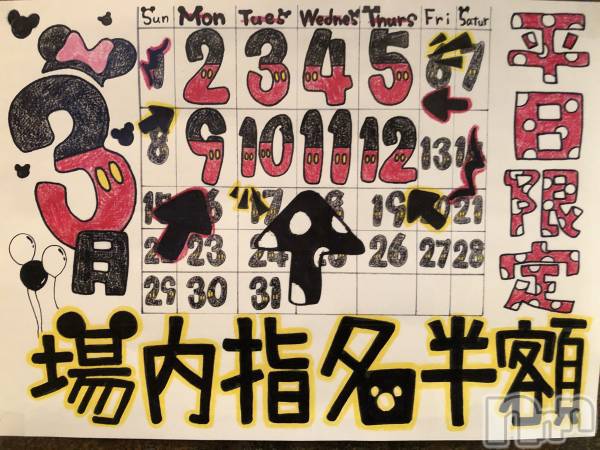 3月
Sun Mon Tues Wednes Thurs Fri Satur
1 2 3 4 5 6 7
8 9 10 11 12 13
19 21
22 23 24 26 27 28
29 30 31
平日限定
場内指名半額